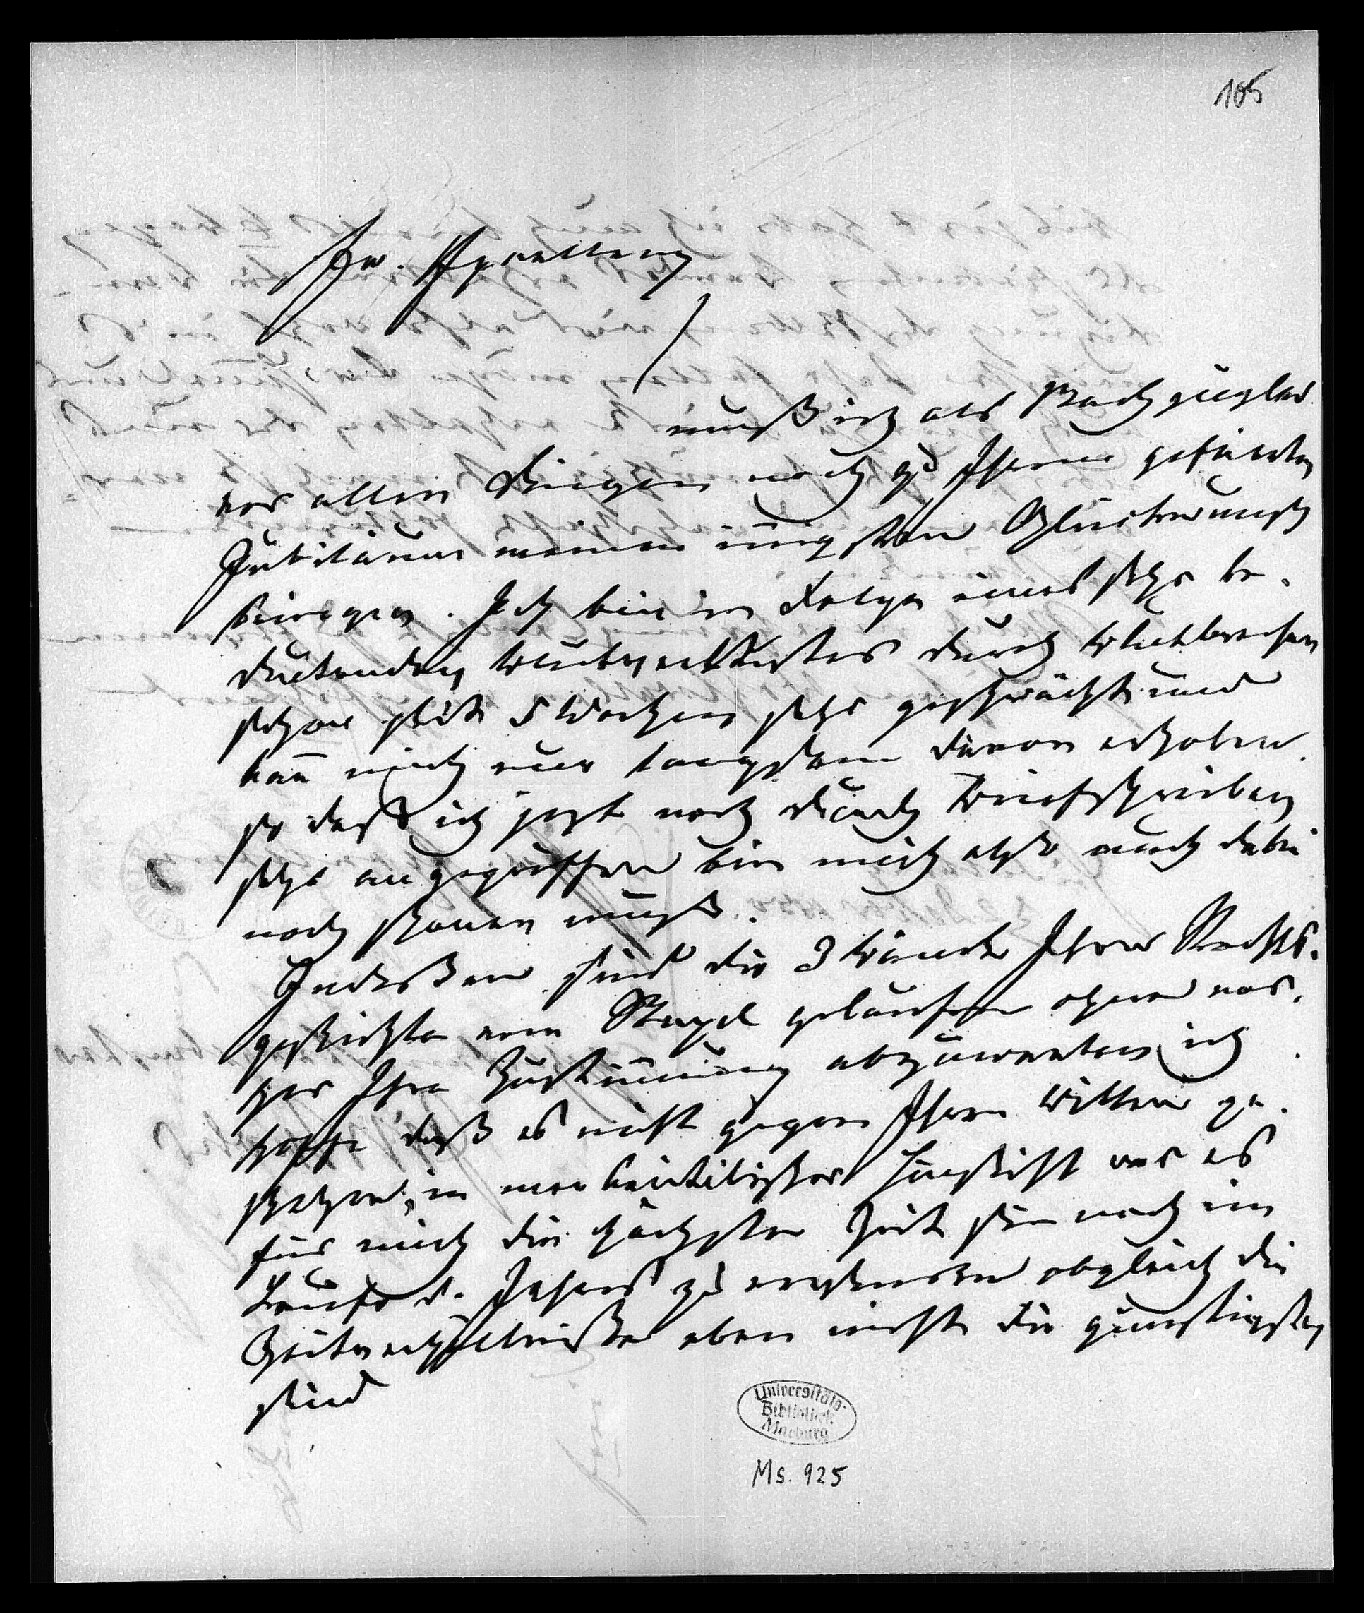 105
Ew. Excellenz
muß ich als Nachzügler
vor allen Dingen noch zu Ihrem gefeierten
Jubiläum meinen innigsten Glückwunsch
bringen. Ich bin in Folge eines sehr be-
deutenden Blutverlustes durch Blutbrechen
schon seit 5 Wochen sehr geschwächt und
kann mich nur langsam davon erholen
so daß ich jezt noch durch Briefschreiben
sehr angegriffen bin mich also auch dabei
noch schonen muß.
Indessen sind die 3 Bände Ihrer Rechts-
geschichte vom Stapel gelaufen ohne vor-
her Ihre Zustimmung abzuwarten, ich
hoffe daß es nicht gegen Ihren Willen ge-
schehen, in merkantilischer Hinsicht war es
für mich die höchste Zeit sie noch im
Laufe d. Jahres zu versenden obgleich die
Zeitverhältnisse eben nicht die günstigsten
sind
Universitäts-
Bibliothek
Marburg
Ms. 925